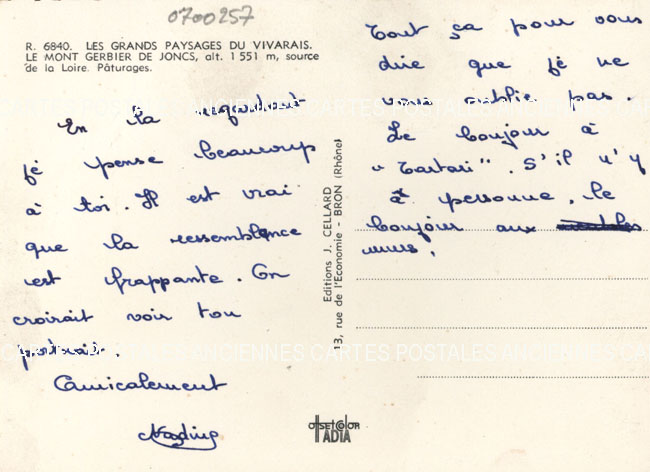 0700257
R. 6840. LES GRANDS PAYSAGES DU VIVARAIS.
LE MONT GERBIER DE JONCS, alt. 1 551 m, source
de la Loire. Pâturages.
En la
je pense beaucoup
à toi. Il est vrai
que la ressemblance
est frappante. On
croirait voir ton
portrait.
Amicalement
Nadine
Editions J. CELLARD
13, rue de l'Economie - BRON (Rhône)
Tout ça pour vous
dire que je ne
vous oublie pas.
Le bonjour à
"Tartari". S'il n'y
à personne, le
bonjour aux
murs.
OFFSETCOLOR
IADIA
CARTES POSTALES ANCIENNES CARTES POSTALES ANCIENNES
CARTES POSTALES ANCIENNES CARTES POSTALES ANCIENNES